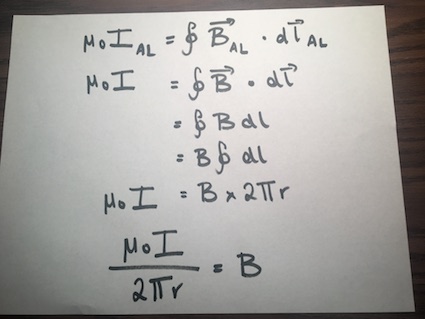 μ₀I_AL = ∮ B⃗_AL · dl⃗_AL
μ₀I = ∮ B⃗ · dl⃗
= ∮ B dl
= B ∮ dl
μ₀I = B × 2πr
μ₀I / 2πr = B